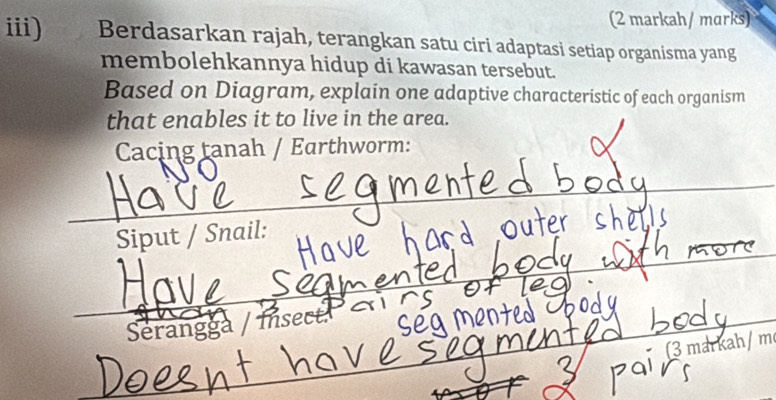 (2 markah/ marks)
iii) Berdasarkan rajah, terangkan satu ciri adaptasi setiap organisma yang
membolehkannya hidup di kawasan tersebut.
Based on Diagram, explain one adaptive characteristic of each organism
that enables it to live in the area.
Cacing tanah / Earthworm:
NO
Have segmented body
Siput / Snail:
Have hard outer shells
Have segmented body with more
than pairs of leg.
Serangga / Insect:
segmented body
Doesnt have segmented body
(3 markah/ m
3 pairs